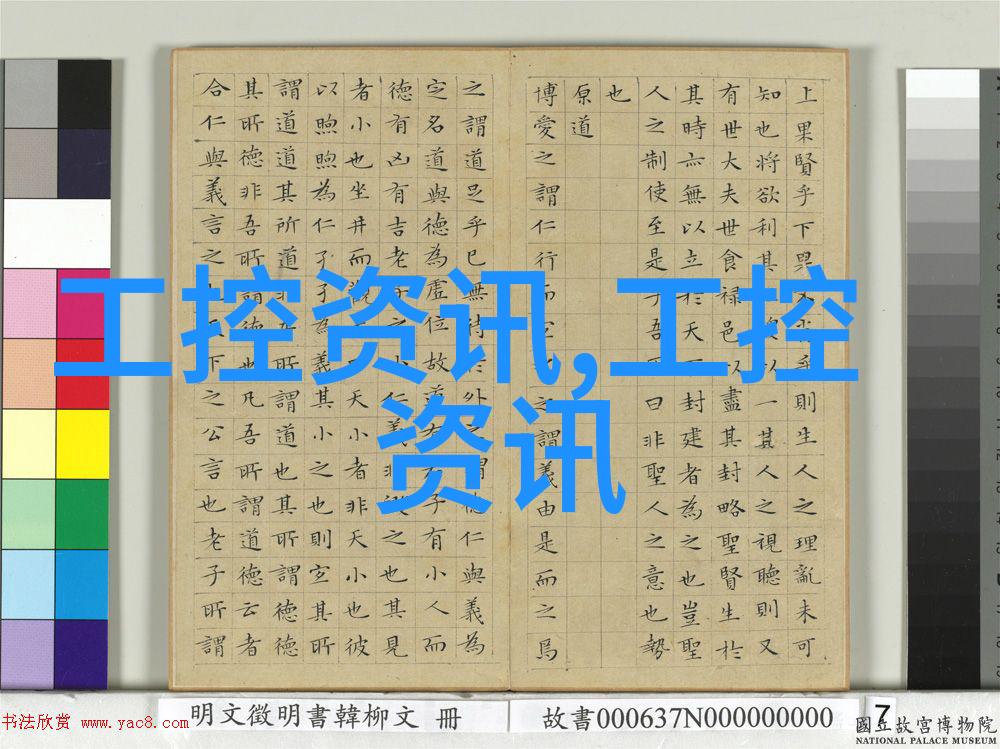 上果賢乎下果不肖乎則生人之理亂未可
知也將欲利其以一其人之視聽則又
有世大夫世食祿邑以盡其封略聖賢生於
其時亦無以立於天下封建者為之也豈聖
人之制使至是乎吾曰非聖人之意也勢
也
原道
博愛之謂仁行而宜之之謂義由是而之焉
之謂道足乎己無待於外之謂德仁與義為
定名道與德為虛位故道有子有小人而
德有凶有吉老子之小仁義非毀之也其見
者小也坐井而觀天天小者非天小也彼
以煦煦為仁孑孑為義其小之也則宜其所
謂道道其所道非吾所謂道也其所謂德德
其所德非吾所謂德也凡吾所謂道德云者
合仁與義言之也天下之公言也老子所謂
工控资讯,工控
资讯
明文徵明書韓柳文 冊
故書000637N000000000
7
國立故宮博物院
NATIONAL PALACE MUSEUM
书法欣赏 www.yac8.com